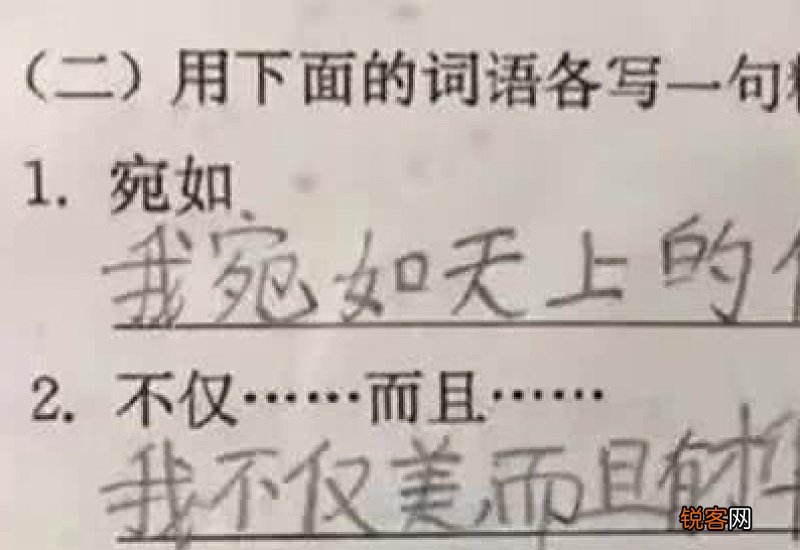 （二）用下面的词语各写一句
1. 宛如
我宛如天上的
2. 不仅……而且……
我不仅美,而且有才
锐客网